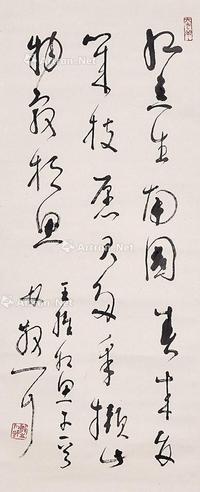 紅豆生南國春來發
幾枝願君多采擷此
物最相思
王維相思子一首
林散耳
Artron.Net